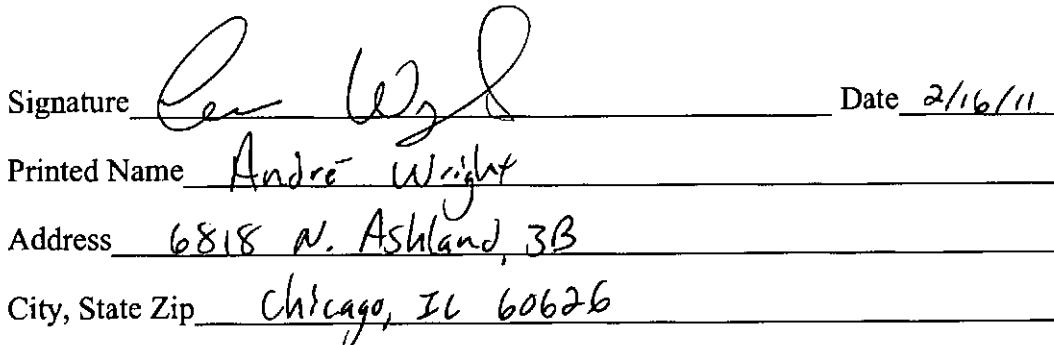 Signature Date 2/16/11
Printed Name André Wright
Address 6818 N. Ashland, 3B
City, State Zip Chicago, IL 60626